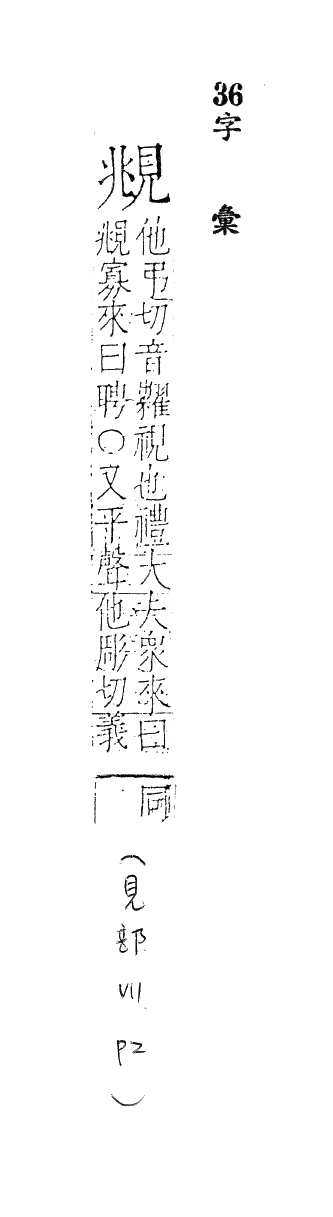 36字彙
覜
他弔切音糶視也禮大夫衆來曰
覜寡來曰聘○又平聲他彫切義
同
(見部 VII P2)